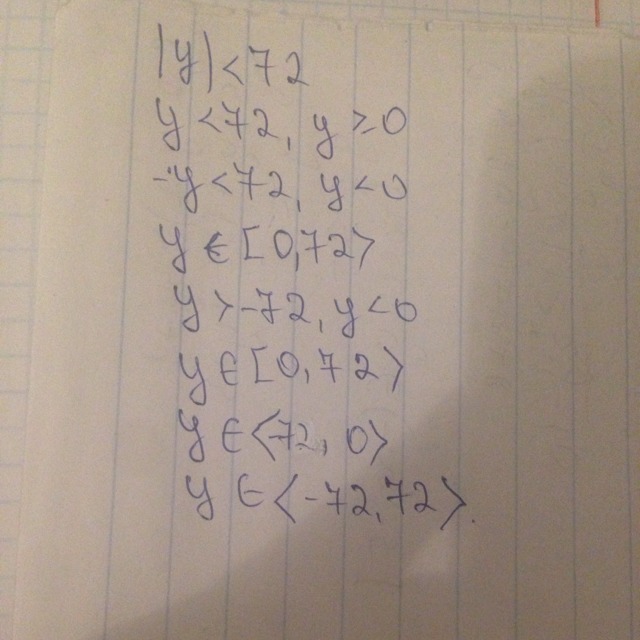 |y|<72
y<72, y>=0
-y<72, y<0
y∈[0,72>
y>-72, y<0
y∈[0,72>
y∈<72, 0>
y∈<-72,72>.